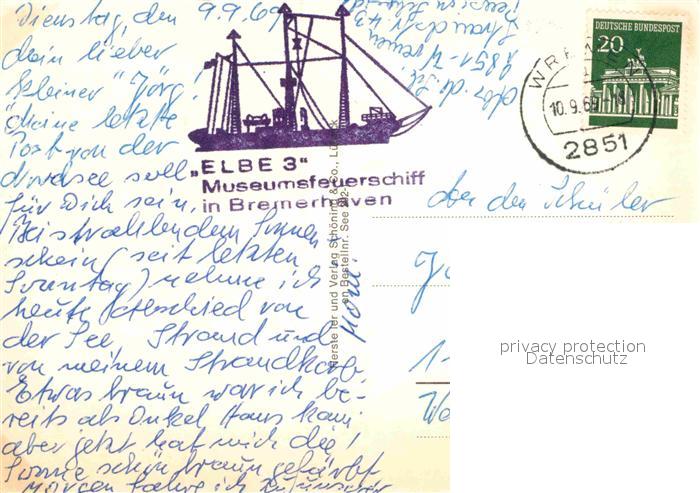 Dienstag, den 9.9.69
Mein lieber
kleiner "Jörg!
deine letzte
Post von der
Nordsee soll
für Dich sein.
Bei strahlendem Sonnen
schein (seit letzten
Sonntag) nehme ich
heute Abschied von
der See, Strand und
von meinem Strandkorb.
Etwas braun war ich be-
reits als Onkel Hans kam
aber jetzt hat mich die
Sonne schön braun gefärbt
Morgen fahre ich
2851
"ELBE 3"
Museumsfeuerschiff
in Bremerhaven
Hersteller und Verlag Schöning & Co., Lübeck
en Bestellnr. See
DEUTSCHE BUNDESPOST
20
WREMEN
10.9.69
2851
An den Schüler
1-
privacy protection
Datenschutz